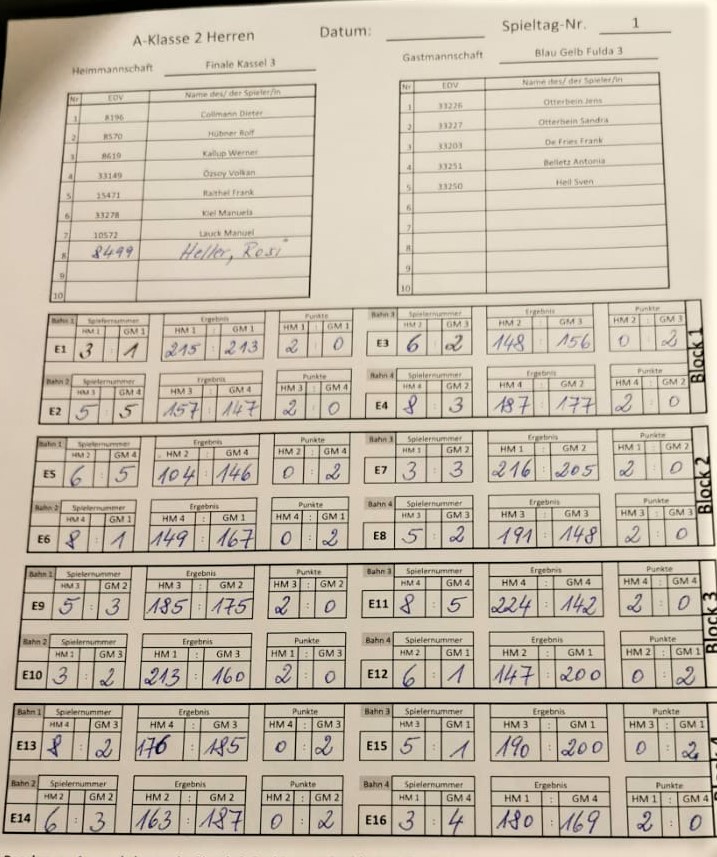 A-Klasse 2 Herren Datum: Spieltag-Nr. 1
Heimmannschaft Finale Kassel 3 Gastmannschaft Blau Gelb Fulda 3
Nr EDV Name des/ der Spieler/in Nr EDV Name des/ der Spieler/in
1 8196 Collmann Dieter 1 33226 Otterbein Jens
2 8570 Hübner Rolf 2 33227 Otterbein Sandra
3 8619 Kallup Werner 3 33203 De Fries Frank
4 33149 Özsoy Volkan 4 33251 Belletz Antonia
5 15471 Raithel Frank 5 33250 Heil Sven
6 33278 Kiel Manuela 6
7 10572 Lauck Manuel 7
8 8499 Heller, Rosi 8
9 9
10 10
Bahn 1 Spielernummer Ergebnis Punkte Bahn 3 Spielernummer Ergebnis Punkte
HM 1 GM 1 HM 1 : GM 1 HM 1 : GM 1 HM 2 GM 3 HM 2 : GM 3 HM 2 : GM 3
E1 3 : 1 215 : 213 2 : 0 E3 6 : 2 148 : 156 0 : 2
Block 1
Bahn 2 Spielernummer Ergebnis Punkte Bahn 4 Spielernummer Ergebnis Punkte
HM 3 GM 4 HM 3 : GM 4 HM 3 : GM 4 HM 4 GM 2 HM 4 : GM 2 HM 4 : GM 2
E2 5 : 5 157 : 147 2 : 0 E4 8 : 3 187 : 177 2 : 0
Bahn 1 Spielernummer Ergebnis Punkte Bahn 3 Spielernummer Ergebnis Punkte
HM 2 GM 4 HM 2 : GM 4 HM 2 : GM 4 HM 1 GM 2 HM 1 : GM 2 HM 1 : GM 2
E5 6 : 5 104 : 146 0 : 2 E7 3 : 3 216 : 205 2 : 0
Block 2
Bahn 2 Spielernummer Ergebnis Punkte Bahn 4 Spielernummer Ergebnis Punkte
HM 4 GM 1 HM 4 : GM 1 HM 4 : GM 1 HM 3 GM 3 HM 3 : GM 3 HM 3 : GM 3
E6 8 : 1 149 : 167 0 : 2 E8 5 : 2 191 : 148 2 : 0
Bahn 1 Spielernummer Ergebnis Punkte Bahn 3 Spielernummer Ergebnis Punkte
HM 3 GM 2 HM 3 : GM 2 HM 3 : GM 2 HM 4 GM 4 HM 4 : GM 4 HM 4 : GM 4
E9 5 : 3 185 : 175 2 : 0 E11 8 : 5 224 : 142 2 : 0
Block 3
Bahn 2 Spielernummer Ergebnis Punkte Bahn 4 Spielernummer Ergebnis Punkte
HM 1 GM 3 HM 1 : GM 3 HM 1 : GM 3 HM 2 GM 1 HM 2 : GM 1 HM 2 : GM 1
E10 3 : 2 213 : 160 2 : 0 E12 6 : 1 147 : 200 0 : 2
Bahn 1 Spielernummer Ergebnis Punkte Bahn 3 Spielernummer Ergebnis Punkte
HM 4 GM 3 HM 4 : GM 3 HM 4 : GM 3 HM 3 GM 1 HM 3 : GM 1 HM 3 : GM 1
E13 8 : 2 176 : 185 0 : 2 E15 5 : 1 190 : 200 0 : 2
Bahn 2 Spielernummer Ergebnis Punkte Bahn 4 Spielernummer Ergebnis Punkte
HM 2 GM 2 HM 2 : GM 2 HM 2 : GM 2 HM 1 GM 4 HM 1 : GM 4 HM 1 : GM 4
E14 6 : 3 163 : 187 0 : 2 E16 3 : 4 180 : 169 2 : 0